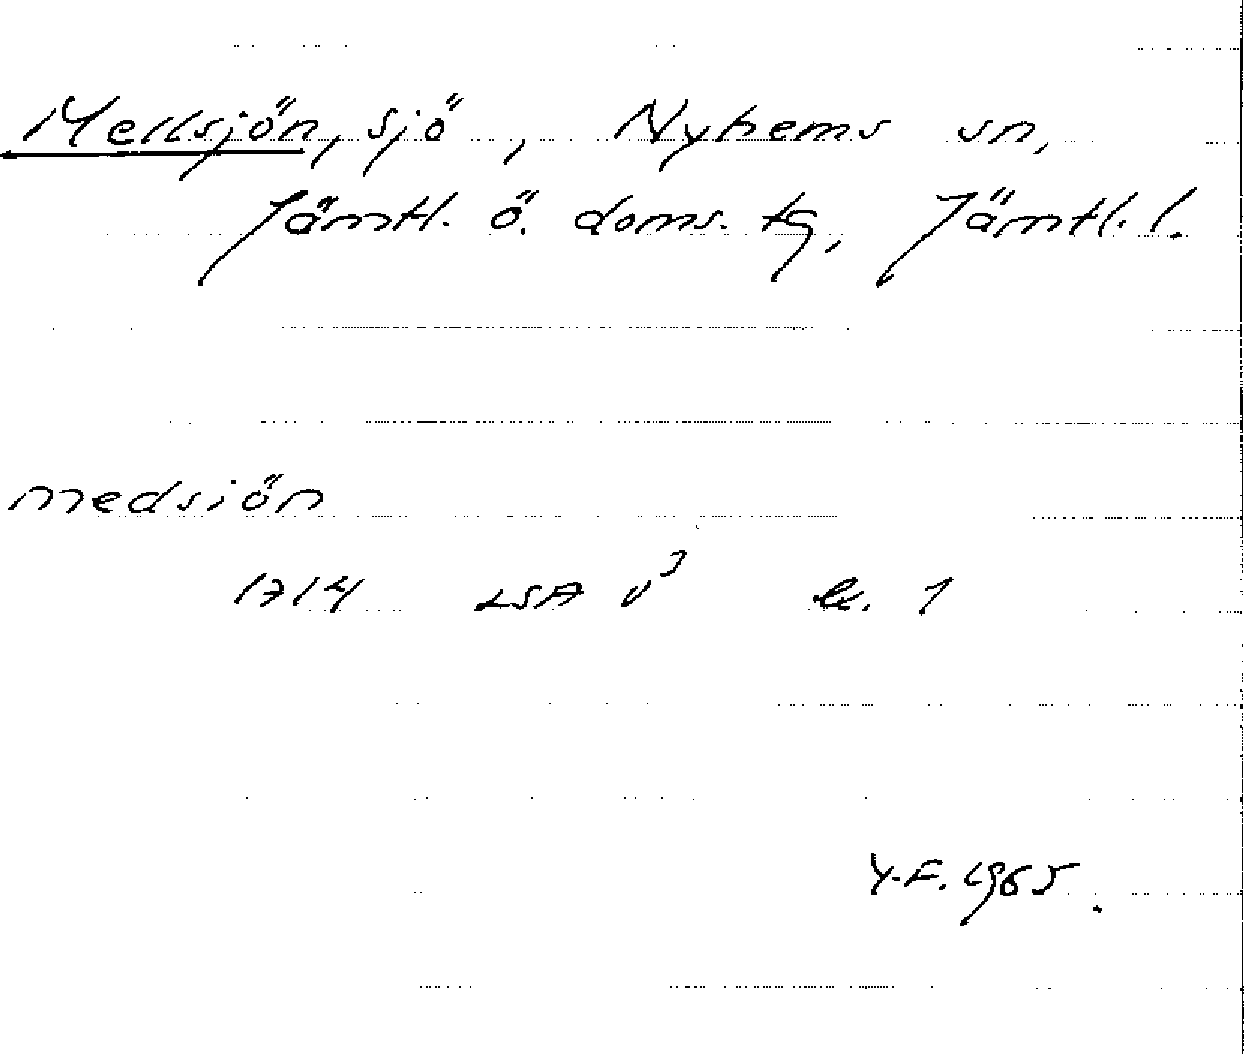 Mellsjön, sjö, Nyhems sn,
Jämtl. ö. doms. tg, Jämtl. l.
medsiön
1714 LSA v³ bl. 1
Y.F. 1965.